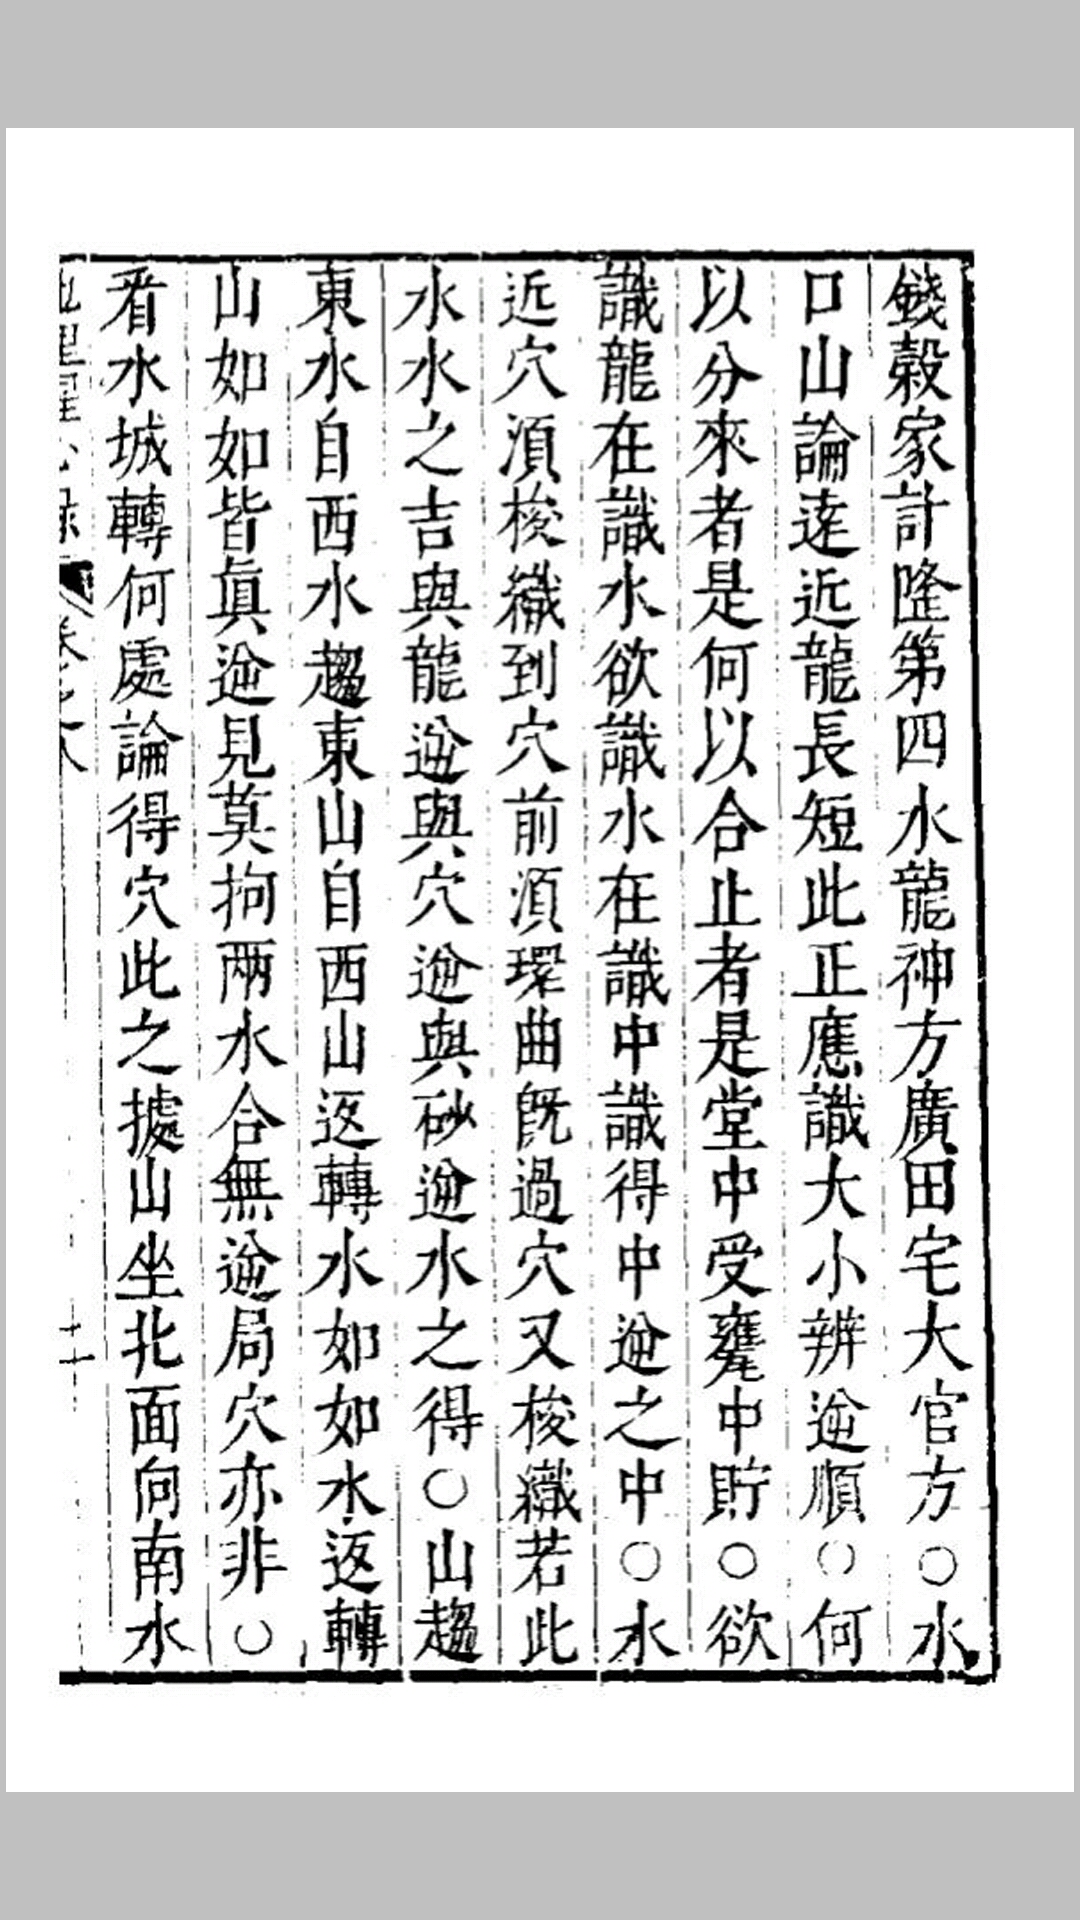 錢榖家計隆第四水龍神方廣田宅大官方○水
口山論逺近龍長短此正應識大小辨逆順○何
以分來者是何以合止者是堂中受甕中貯○欲
識龍在識水欲識水在識中識得中逆之中○水
近穴湏梭織到穴前湏環曲旣過穴又梭織若此
水水之吉與龍逆與穴逆與砂逆水之得○山趨
東水自西水趨東山自西山返轉水如如水返轉
山如如皆眞逆見莫拘兩水合無逆局穴亦非○
看水城轉何處論得穴此之據山坐北面向南水